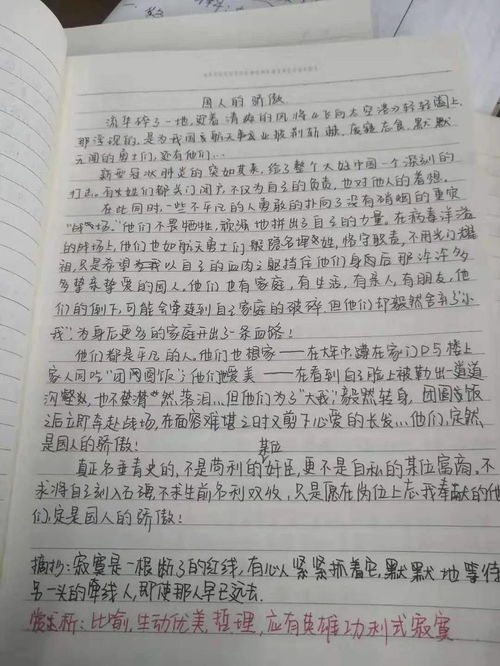 国人的骄傲
流华碎了一地,迎着清晦的风将《飞向太空港》轻轻阖上
那浮现的,是为我国航天事业披荆斩棘、废寝忘食、默默
无闻的勇士们,还有他们…
新型冠状肺炎的突如其来,给了整个大好中国一个深刻的
打击。有些人们都关门闭户,不仅为自己的负责,也对他人的着想。
在此同时,一些不平凡的人勇敢的扑向了没有硝烟的重灾
"战场。"他们不畏牺牲,顽强地拼出了自己的力量。在病毒洋溢
的战场上,他们也如航天勇士们般隐名埋姓,恪守职责,不用光门耀
祖,只是希望为我以自己的血肉之躯挡住他们身肉后那许许多
多挚亲挚爱的国人,他们也有家庭,有生活,有亲人,有朋友,他
们的倒下,可能会牵涉到自己家庭的破碎,但他们却毅然舍弃"小
我",为身后更多的家庭开出了一条血路!
他们都是平凡的人。他们也恨家——在大年中蹲在家门口与楼上
家人同吃"团圆饭";他们爱美——在看到自己脸上被勒出一道道
沉壑,也不禁潸然落泪…但他们为了"大我"毅然转身,团圆饭
之后立即奔赴战场,在面容难堪之时又剪下心爱的长发…他们,定然
是国人的骄傲!
真正名垂青史的,不是苟利的奸臣,更不是自私的某位富商。不
某位
求将自己刻入石碑,不求生前名利双收,只是愿在岗位上忘我奉献的他
们,定是国人的骄傲!
摘抄:寂寞是一根断了的红线,有心人紧紧抓着它,默默地等待
另一头的牵线人,即使那人早已远去
赏析:比喻,生动优美,哲理,应有英雄功利式寂寞